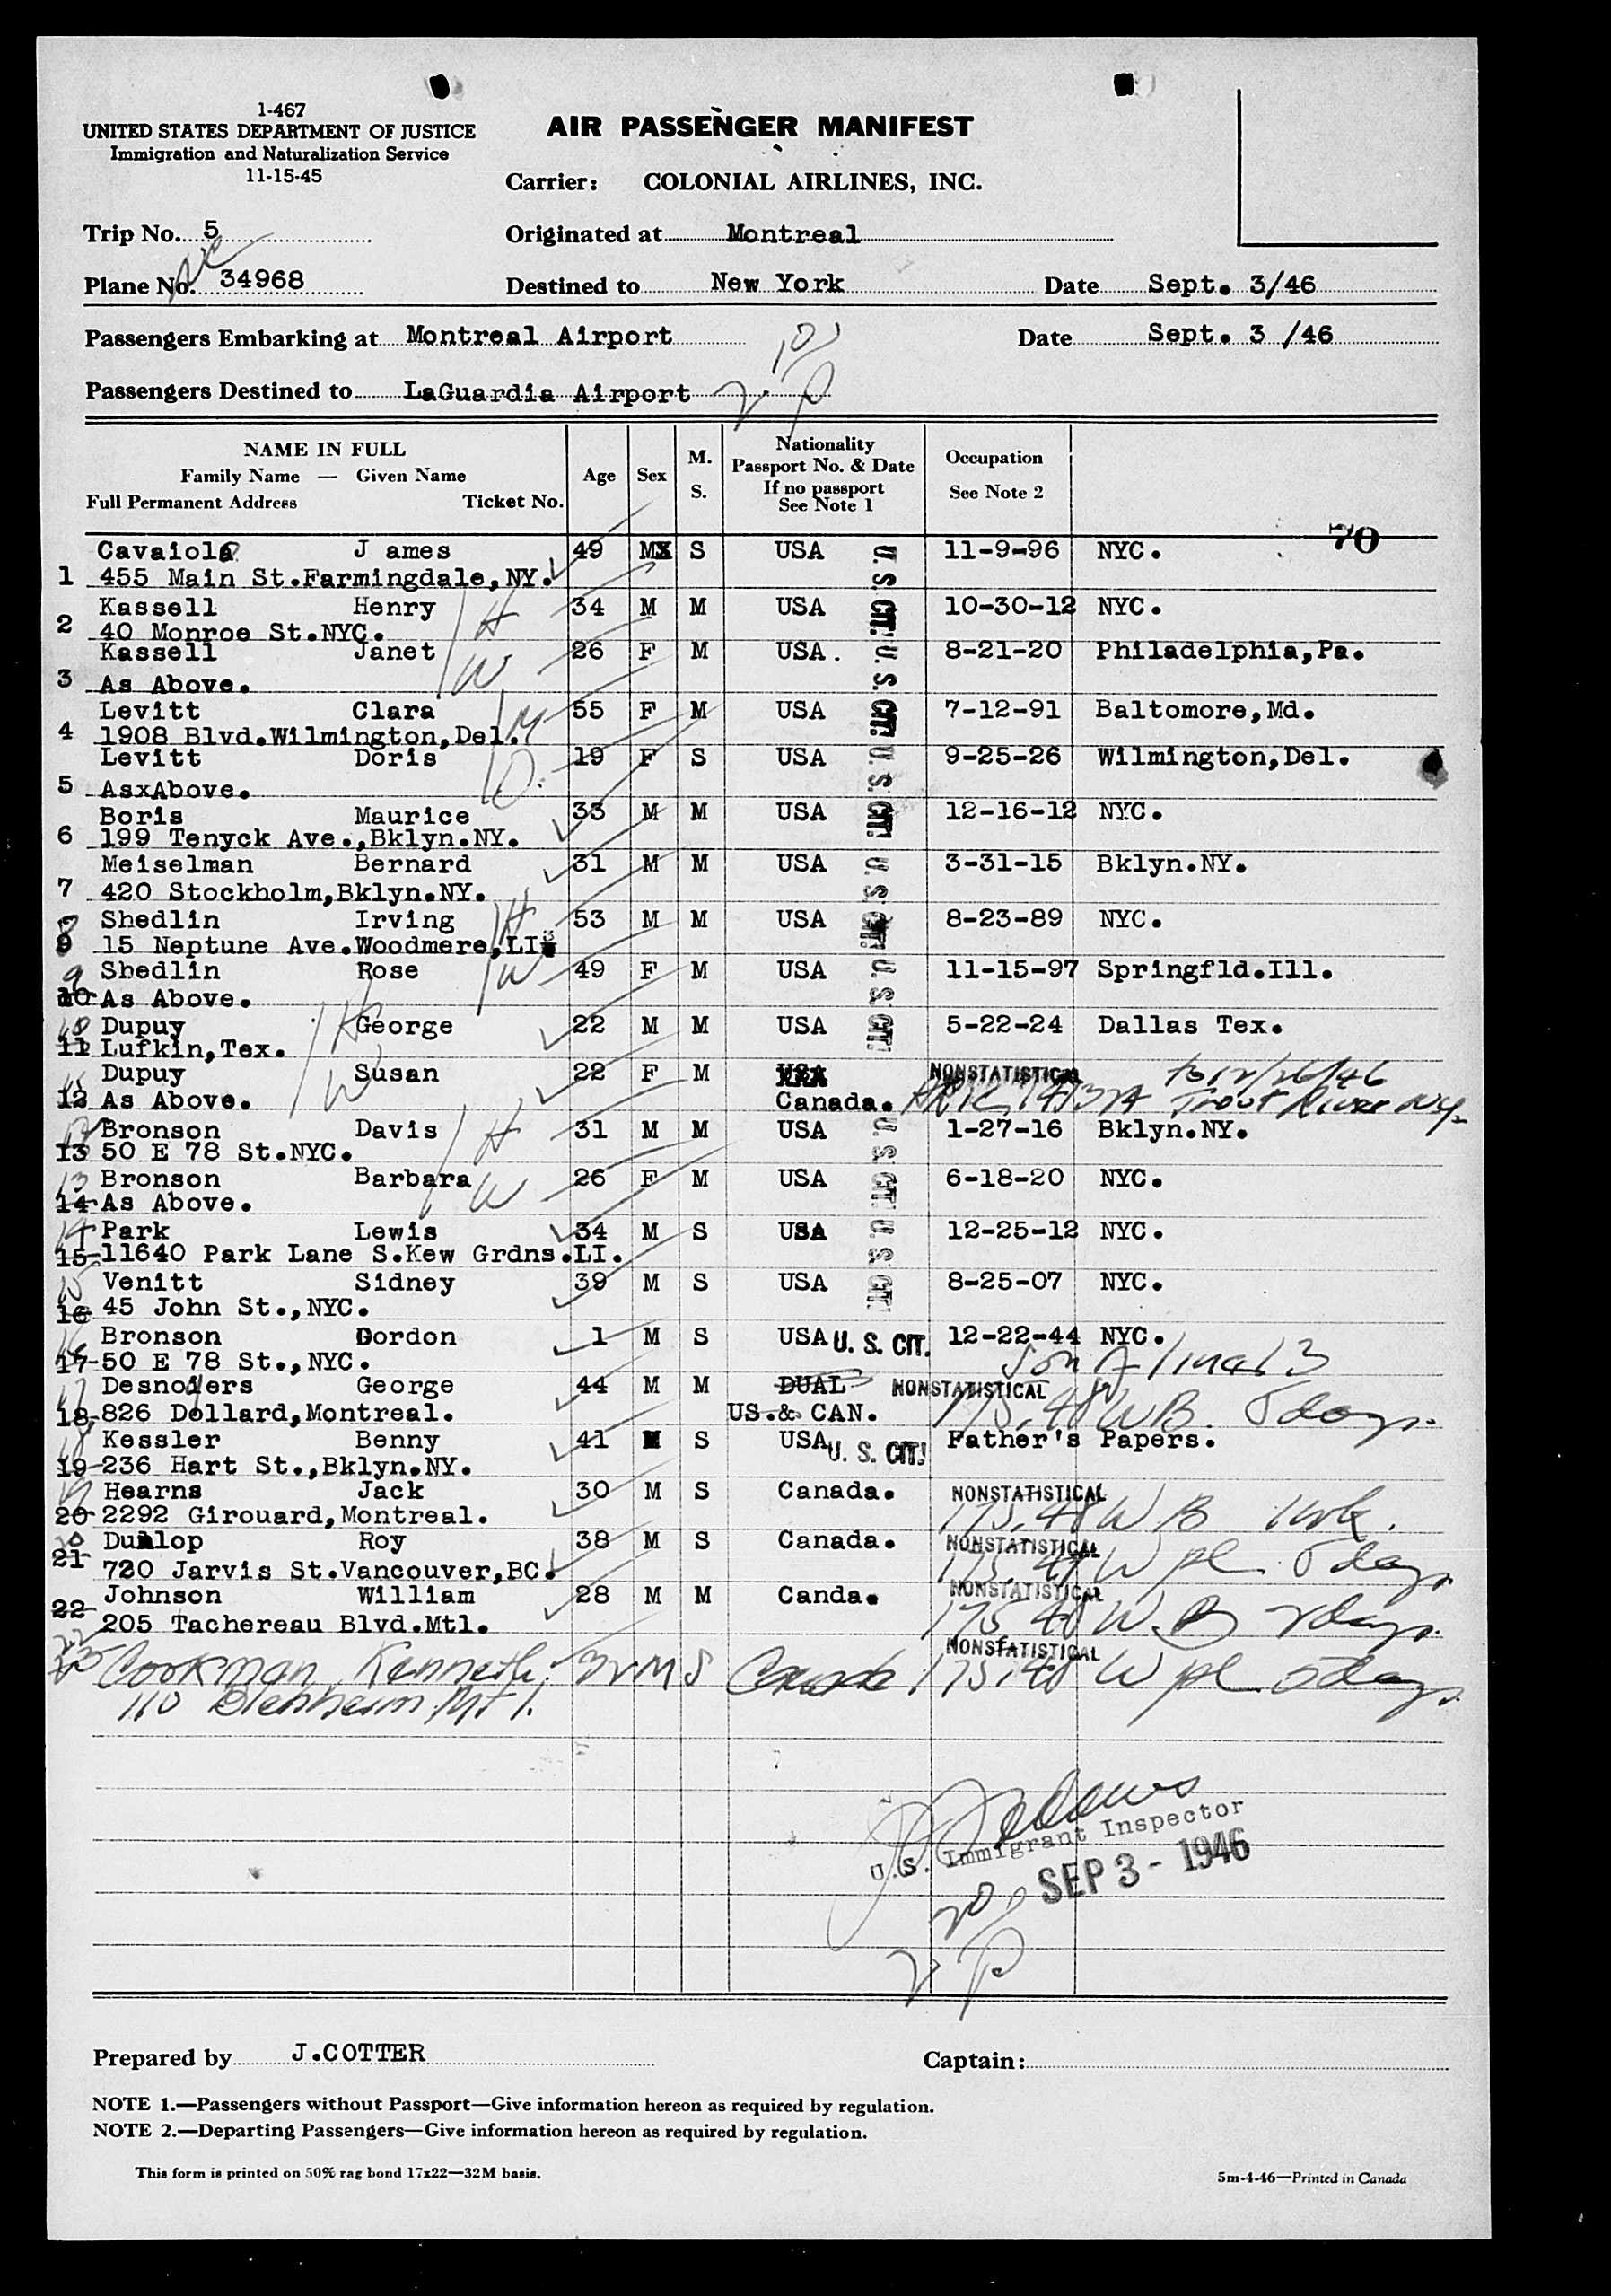 1-467
UNITED STATES DEPARTMENT OF JUSTICE
Immigration and Naturalization Service
11-15-45
AIR PASSENGER MANIFEST
Carrier: COLONIAL AIRLINES, INC.
Trip No. 5
Originated at Montreal
Plane No. 34968
Destined to New York Date Sept. 3/46
Passengers Embarking at Montreal Airport Date Sept. 3 /46
Passengers Destined to LaGuardia Airport
NAME IN FULL
Family Name — Given Name
Full Permanent Address Ticket No.
Age Sex M. S.
Nationality
Passport No. & Date
If no passport
See Note 1
Occupation
See Note 2
70
Cavaiola James 49 M S USA U. S. CIT. 11-9-96 NYC.
1 455 Main St.Farmingdale,NY.
Kassell Henry H 34 M M USA U. S. CIT. 10-30-12 NYC.
2 40 Monroe St.NYC.
Kassell Janet W 26 F M USA. U. S. CIT. 8-21-20 Philadelphia,Pa.
3 As Above.
Levitt Clara M 55 F M USA 7-12-91 Baltomore,Md.
4 1908 Blvd.Wilmington,Del.
Levitt Doris D. 19 F S USA U. S. CIT. 9-25-26 Wilmington,Del.
5 AsxAbove.
Boris Maurice 33 M M USA 12-16-12 NYC.
6 199 Tenyck Ave.,Bklyn.NY.
Meiselman Bernard 31 M M USA U. S. CIT. 3-31-15 Bklyn.NY.
7 420 Stockholm,Bklyn.NY.
8 Shedlin Irving H 53 M M USA 8-23-89 NYC.
9 15 Neptune Ave.Woodmere,LI
9 Shedlin Rose W 49 F M USA U. S. CIT. 11-15-97 Springfld.Ill.
10 As Above.
10 Dupuy George H 22 M M USA 5-22-24 Dallas Tex.
11 Lufkin,Tex.
11 Dupuy Susan W 22 F M USA NONSTATISTICAL to 12/26/46
12 As Above. Canada. Trout River NY.
12 Bronson Davis H 31 M M USA U. S. CIT. 1-27-16 Bklyn.NY.
13 50 E 78 St.NYC.
13 Bronson Barbara W 26 F M USA 6-18-20 NYC.
14 As Above.
14 Park Lewis 34 M S USA U. S. CIT. 12-25-12 NYC.
15 11640 Park Lane S.Kew Grdns.LI.
15 Venitt Sidney 39 M S USA 8-25-07 NYC.
16 45 John St.,NYC.
16 Bronson Gordon 1 M S USA U. S. CIT. 12-22-44 NYC.
17 50 E 78 St.,NYC. Son of 12 and 13
17 Desnoyers George 44 M M DUAL NONSTATISTICAL
18 826 Dollard,Montreal. US.& CAN. 175.48 WB 5 days.
18 Kessler Benny 41 M S USA U. S. CIT. Father's Papers.
19 236 Hart St.,Bklyn.NY.
19 Hearns Jack 30 M S Canada. NONSTATISTICAL
20 2292 Girouard,Montreal. 175.48 WB 1 wk.
20 Dunlop Roy 38 M S Canada. NONSTATISTICAL
21 720 Jarvis St.Vancouver,BC. 175.47 W pl. 5 days
Johnson William 28 M M Canda. NONSTATISTICAL
22 205 Tachereau Blvd.Mtl. 175.48 W.B 2 days.
NONSTATISTICAL
23 Cookman, Kenneth 32 M S Canada 175.48 W pl 5 days
110 Blenheim Mtl.
U.S. Immigrant Inspector
SEP 3 - 1946
Prepared by J.COTTER
Captain:
NOTE 1.—Passengers without Passport—Give information hereon as required by regulation.
NOTE 2.—Departing Passengers—Give information hereon as required by regulation.
This form is printed on 50% rag bond 17x22—32M basis.
5m-4-46—Printed in Canada